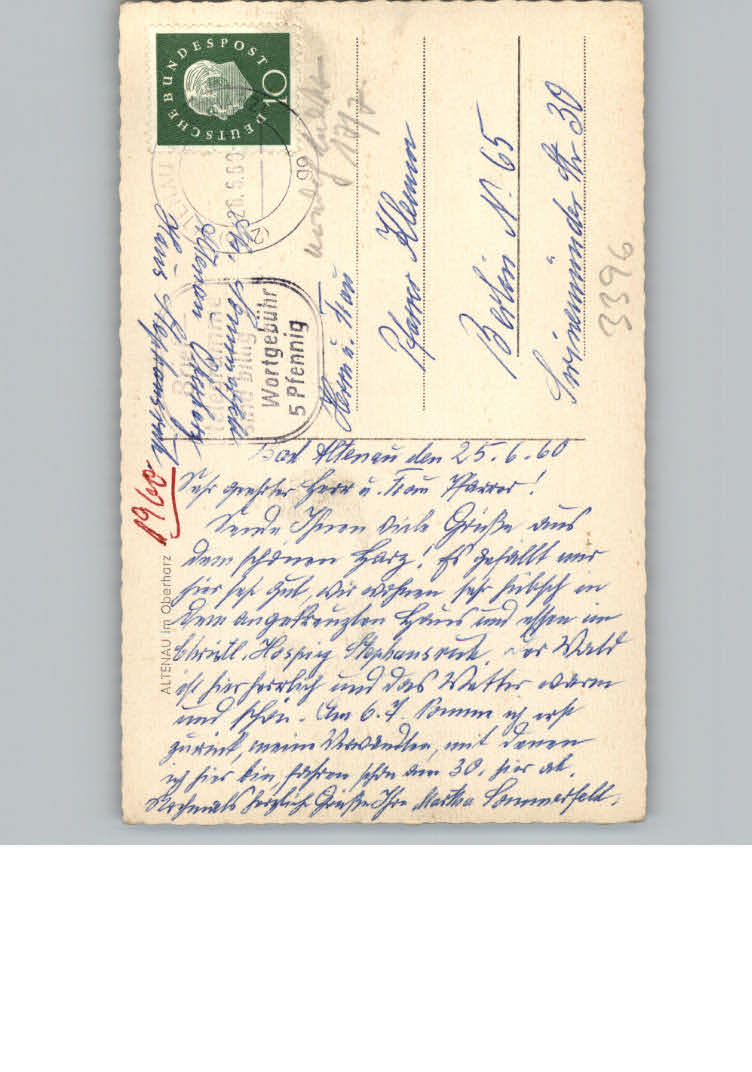 Bad Altenau den 25.6.60
Sehr geehrter Herr u. Frau Pfarrer!
Sende Ihnen viele Grüße aus
dem schönen Harz! Es gefällt mir
hier sehr gut, wir wohnen sehr hübsch in
dem angekreuzten Haus und essen im
christl. Hospiz Stephansruh. Der Wald
ist hier herrlich und das Wetter warm
und schön. Am 6.7. komm ich erst
zurück, meine Verwandten, mit denen
ich hier bin, fahren schon am 30. hier ab.
Nochmals herzliche Grüße Ihre Martha Sommerfeld.
ALTENAU im Oberharz
1960
Sommerfeld
Altenau Oberharz
Haus Stephansruh
DEUTSCHE BUNDESPOST
10
ALTENAU
26.6.60
Briefe
Telegramme
sind billig
Wortgebühr
5 Pfennig
17/7.
Herrn u. Frau
Pfarrer Klemm
Berlin N. 65
Swinemünder Str 30
3396